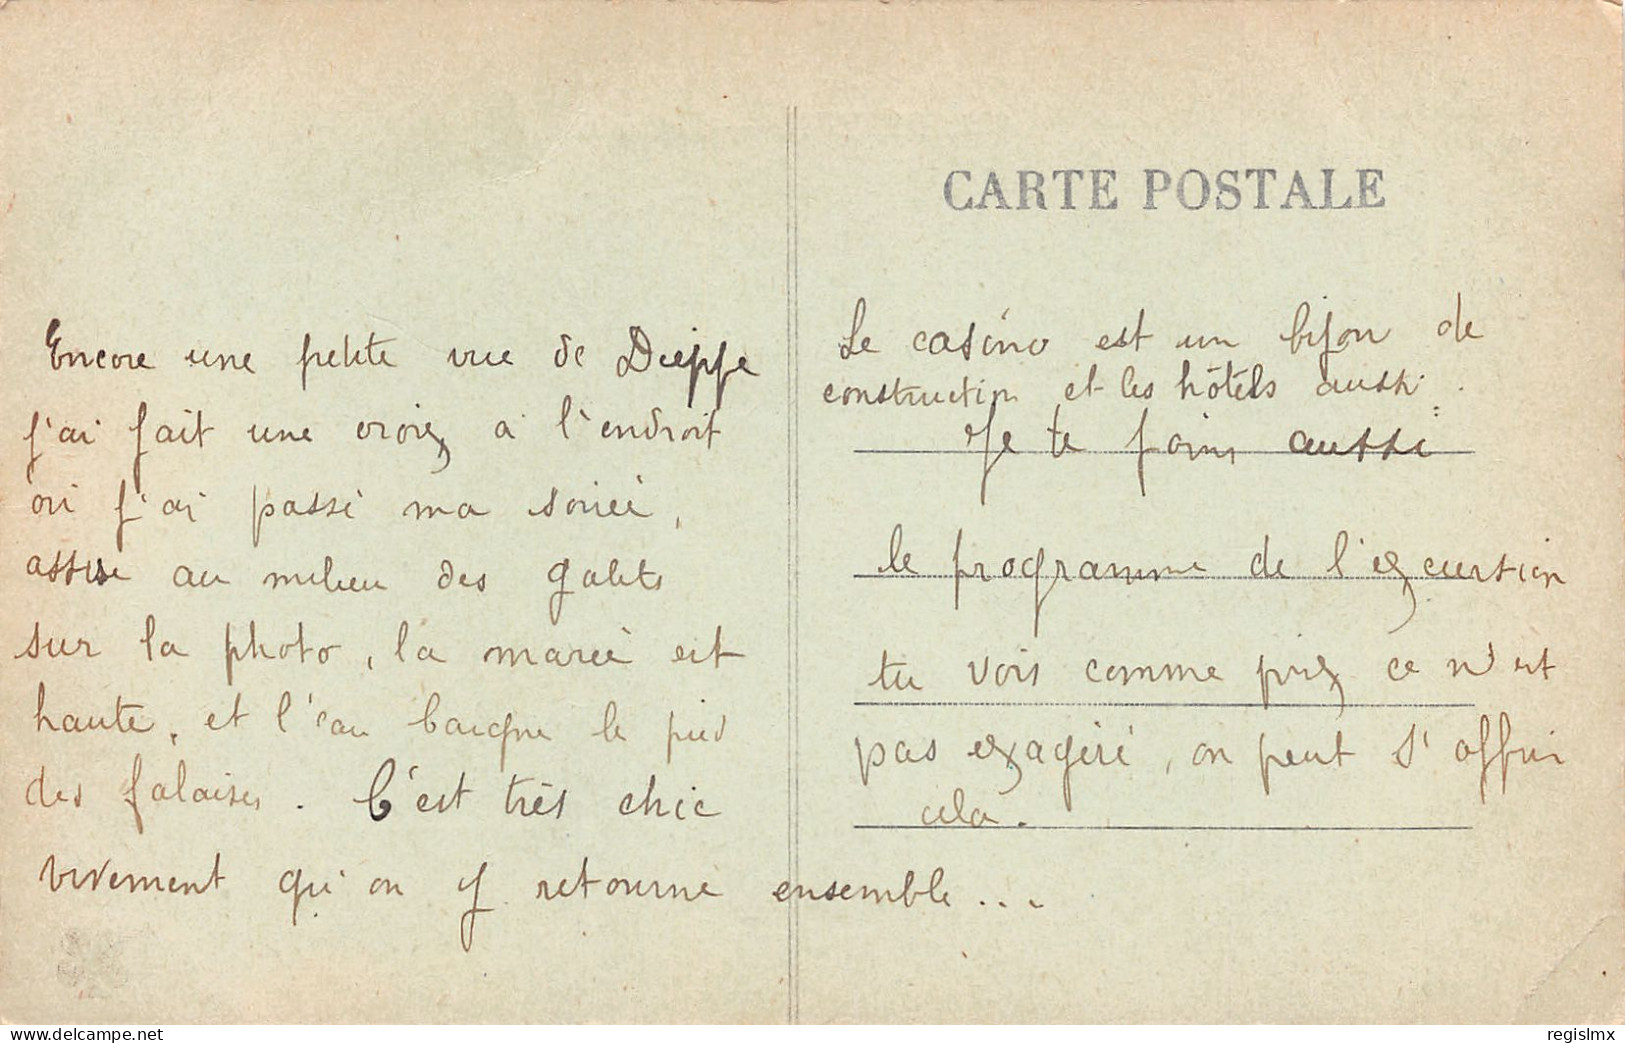 CARTE POSTALE
Encore une petite vue de Dieppe
j'ai fait une croix à l'endroit
où j'ai passé ma soirée,
assise au milieu des galets
sur la photo, la marée est
haute, et l'eau baigne le pied
des falaises. C'est très chic
vivement qu'on y retourne ensemble...
Le casino est un bijou de
construction et les hôtels aussi.
Je te joins aussi
le programme de l'excursion
tu vois comme prix ce n'est
pas exagéré, on peut s'offrir
cela.
www.delcampe.net
regislmx